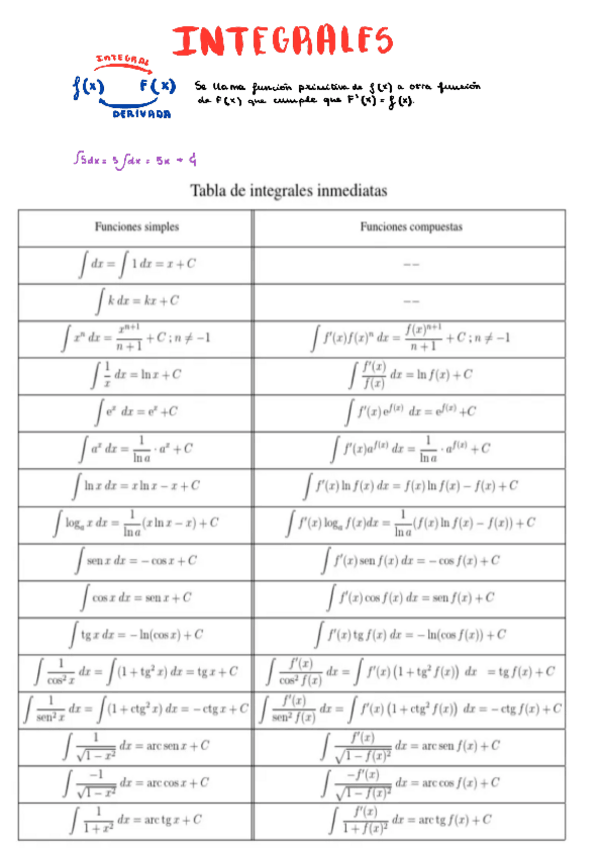 INTEGRALES
INTEGRAL
f(x) F(x)
DERIVADA
Se llama función primitiva de f(x) a otra función
de F(x) que cumple que F'(x) = f(x).
∫5dx = 5∫dx = 5x +
Tabla de integrales inmediatas
Funciones simples Funciones compuestas
∫ dx = ∫ 1 dx = x + C −−
∫ k dx = kx + C −−
∫ xⁿ dx = xⁿ⁺¹/(n+1) + C ; n ≠ −1 ∫ f'(x)f(x)ⁿ dx = f(x)ⁿ⁺¹/(n+1) + C ; n ≠ −1
∫ 1/x dx = ln x + C ∫ f'(x)/f(x) dx = ln f(x) + C
∫ eˣ dx = eˣ +C ∫ f'(x) e^f(x) dx = e^f(x) +C
∫ aˣ dx = 1/ln a · aˣ + C ∫ f'(x)a^f(x) dx = 1/ln a · a^f(x) + C
∫ ln x dx = x ln x − x + C ∫ f'(x) ln f(x) dx = f(x) ln f(x) − f(x) + C
∫ logₐ x dx = 1/ln a (x ln x − x) + C ∫ f'(x) logₐ f(x)dx = 1/ln a (f(x) ln f(x) − f(x)) + C
∫ sen x dx = − cos x + C ∫ f'(x) sen f(x) dx = − cos f(x) + C
∫ cos x dx = sen x + C ∫ f'(x) cos f(x) dx = sen f(x) + C
∫ tg x dx = − ln(cos x) + C ∫ f'(x) tg f(x) dx = − ln(cos f(x)) + C
∫ 1/cos² x dx = ∫(1 + tg² x) dx = tg x + C ∫ f'(x)/cos² f(x) dx = ∫ f'(x) (1 + tg² f(x)) dx = tg f(x) + C
∫ 1/sen² x dx = ∫(1 + ctg² x) dx = − ctg x + C ∫ f'(x)/sen² f(x) dx = ∫ f'(x) (1 + ctg² f(x)) dx = − ctg f(x) + C
∫ 1/√(1 − x²) dx = arc sen x + C ∫ f'(x)/√(1 − f(x)²) dx = arc sen f(x) + C
∫ −1/√(1 − x²) dx = arc cos x + C ∫ −f'(x)/√(1 − f(x)²) dx = arc cos f(x) + C
∫ 1/(1 + x²) dx = arc tg x + C ∫ f'(x)/(1 + f(x)²) dx = arc tg f(x) + C